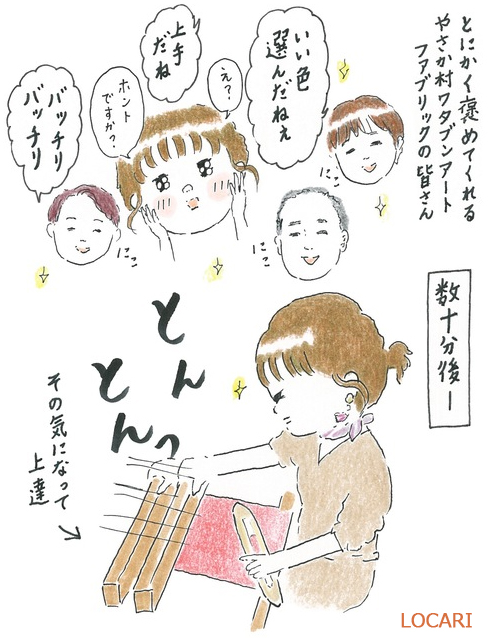 とにかく褒めてくれる
やさか村ワタブンアート
ファブリックの皆さん
いい色
選んだねぇ
え?
上手
だね
ホント
ですか?
バッチリ
バッチリ
にこ
にこ
にこ
数十分後ー
とん
とんっ
その気になって
上達
LOCARI